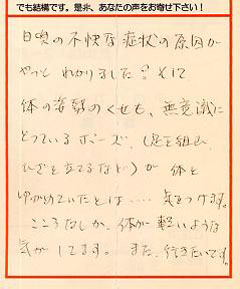 でも結構です。是非、あなたの声をお寄せ下さい!
日頃の不快な症状の原因が
やっとわかりました? とくに
体の姿勢のくせも、無意識に
とっているポーズ、(足を組む、
ひざを立てるなど)が 体を
ゆがめていたとは…… 気をつけます。
こころなしか、体が軽いような
気がしてます。 また、行きたいです。